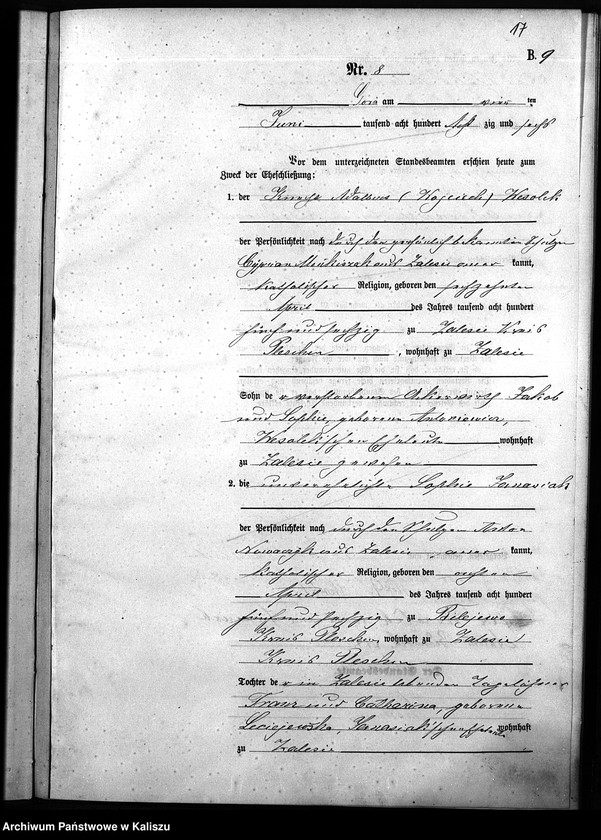 17
B. 9
Nr. 8
Gora am vier ten
Juni tausend acht hundert acht zig und sechs
Vor dem unterzeichneten Standesbeamten erschien heute zum
Zweck der Eheschließung:
1. der Knecht Adalbert (Wojciech) Wesolek
der Persönlichkeit nach durch den persönlich bekannten Schulzen
Cyprian aus Zalesie aner kannt,
katholischer Religion, geboren den sechzehnten
April des Jahres tausend acht hundert
fünf und sechzig zu Zalesie Kreis
Pleschen, wohnhaft zu Zalesie
Sohn de r verstorbenen Ackerwirth Jakob
und Sophie, geborene Antoniewicz,
Wesolekschen Eheleute wohnhaft
zu Zalesie gewesen
2. die unverehelichte Sophie Janasiak
der Persönlichkeit nach durch den Schulzen Anton
Nowaczyk aus Zalesie aner kannt,
katholischer Religion, geboren den achten
April des Jahres tausend acht hundert
fünf und sechzig zu
Kreis Pleschen, wohnhaft zu Zalesie
Kreis Pleschen
Tochter de r in Zalesie lebenden Tagelöhner
Franz und Catharina, geborene
Janasiakschen Eheleute wohnhaft
zu Zalesie
Archiwum Państwowe w Kaliszu